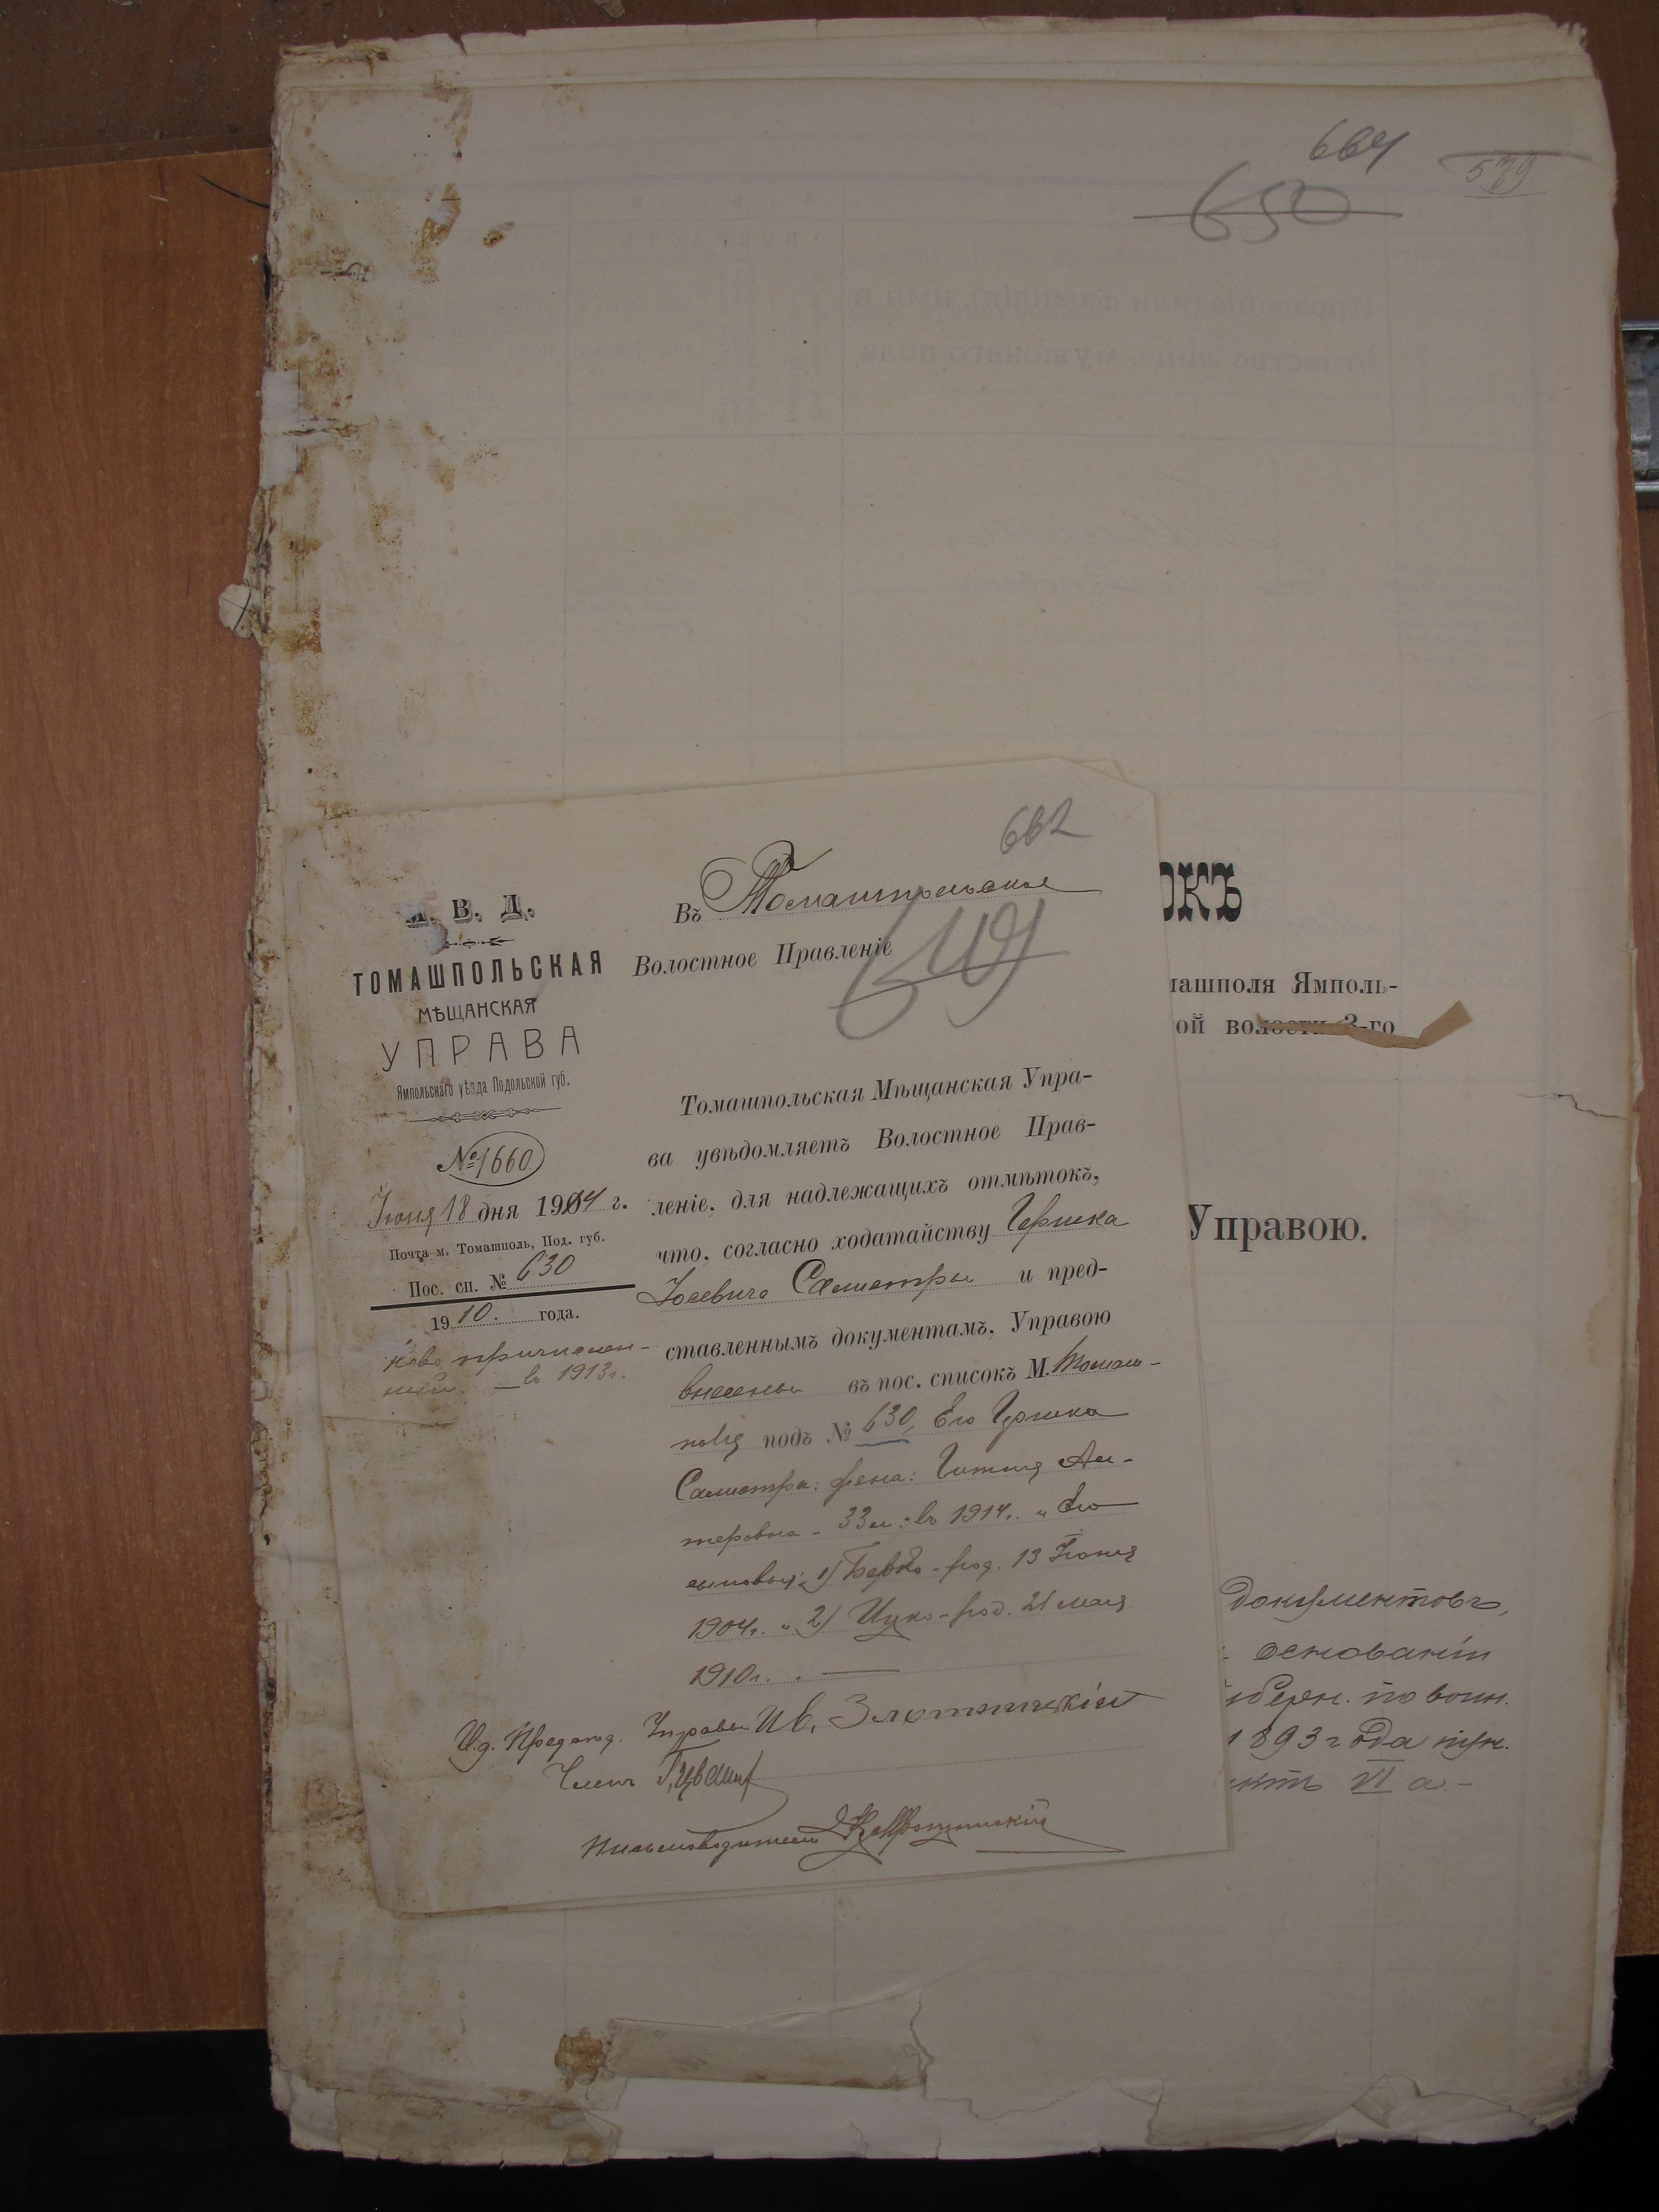 664
579
650
662
649
М. В. Д.
ТОМАШПОЛЬСКАЯ
МѢЩАНСКАЯ
УПРАВА
Ямпольскаго уѣзда Подольской губ.
№ 1660
Іюня 18 дня 1914 г.
Почта м. Томашполь, Под. губ.
Пос. сп. № 630
1910. года.
ново причислен-
ный. — въ 1913 г.
Въ Томашпольское
Волостное Правленіе
Томашпольская Мѣщанская Упра-
ва увѣдомляетъ Волостное Прав-
леніе, для надлежащихъ отмѣтокъ,
что, согласно ходатайству Гершка
Іосевича и пред-
ставленнымъ документамъ, Управою
внесены въ пос. списокъ М. Томаш-
поля подъ № 630, Его Гершка
жена: Гитля
33 л: въ 1914 г. " Его
сыновья: 1) Берко - род. 13 Іюня
1904 г. " 2) Ицко - род. 21 мая
1910 г. . —
И.д. Предсѣд. Управы Ив. Злотницкій
Членъ
Письмоводитель
ОКЪ
машполя Ямполь-
ой волости 3-го
Управою.
документовъ,
основаніи
губерн. по воин.
1893 года пун.
VI а -